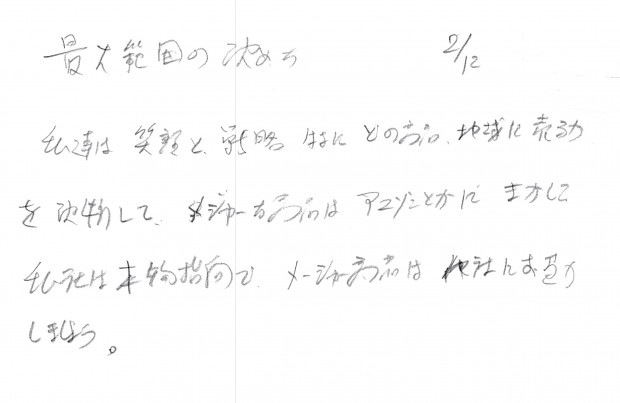 最大範囲の決め方 2/12
私達は 笑顔と、戦略 はなに どの商品、地域に売るか
を決断して、メジャーな商品は アマゾンとかに まかして
私社は本物指向で、メージャ商品は 他社にお任か
しましょう。